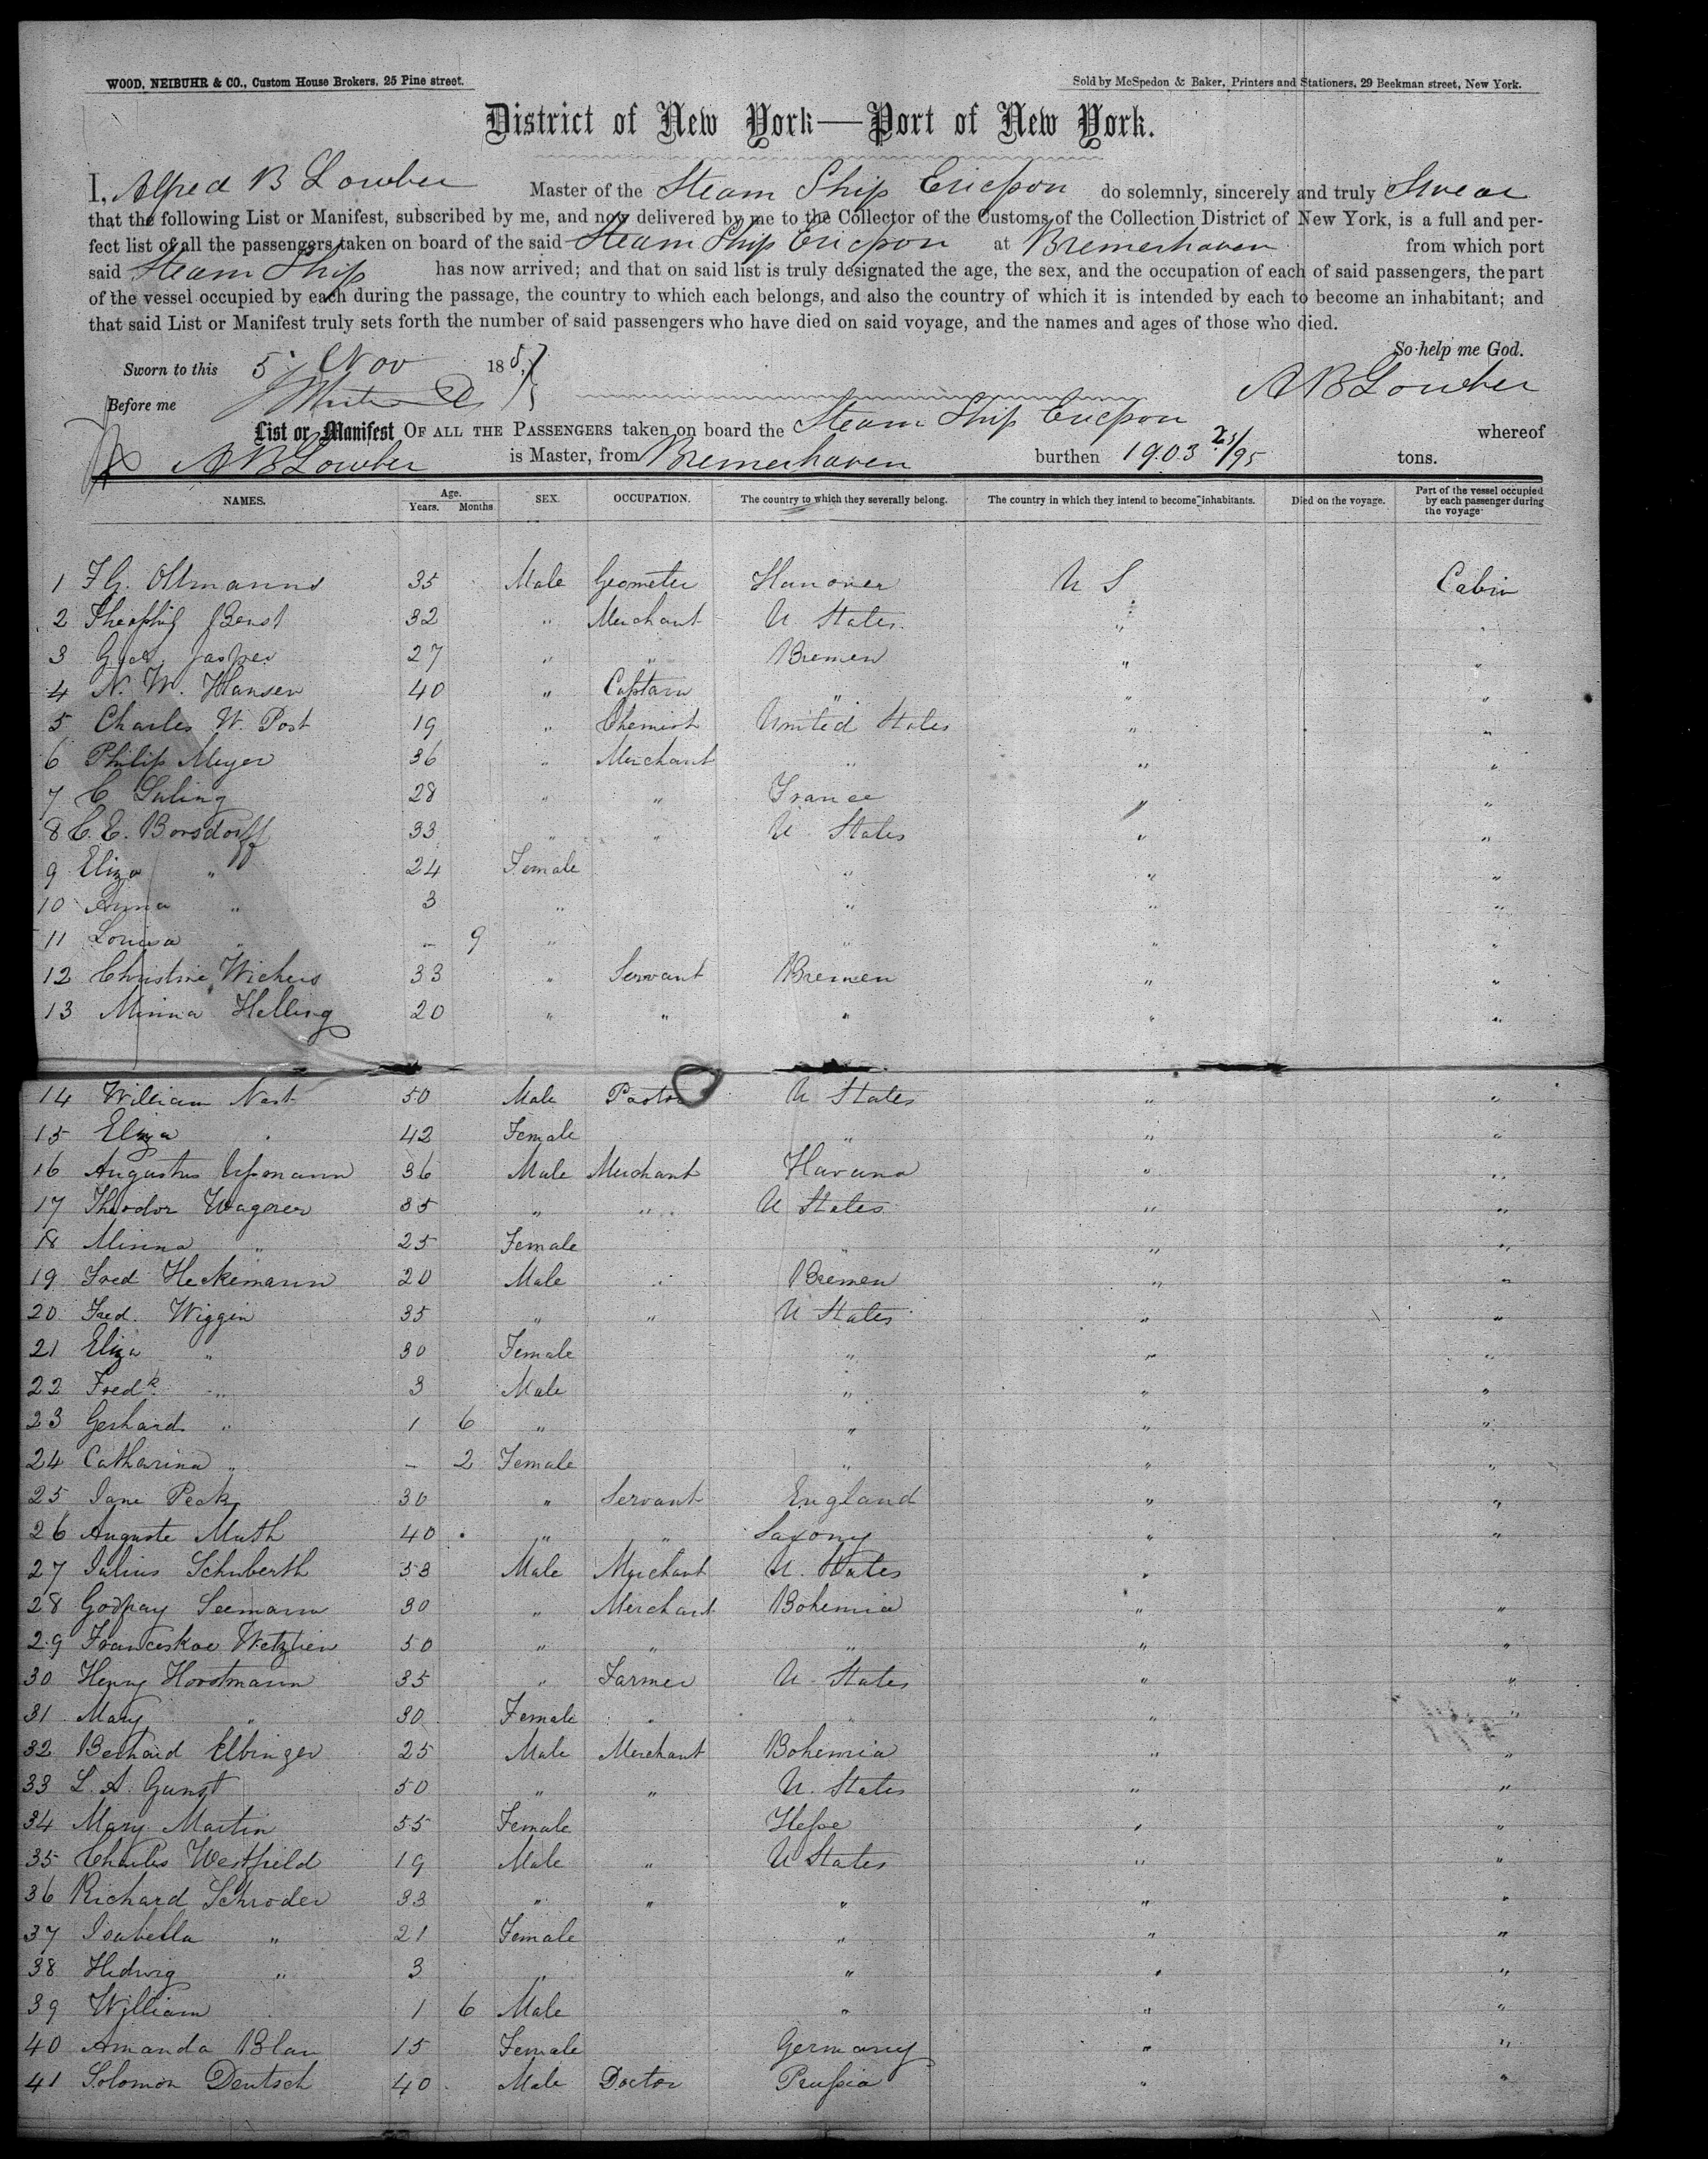 WOOD, NEIBUHR & CO., Custom House Brokers, 25 Pine street. Sold by McSpedon & Baker, Printers and Stationers, 29 Beekman street, New York.
District of New York—Port of New York.
I, Alfred B Lowber Master of the Steam Ship Ericsson do solemnly, sincerely and truly Swear
that the following List or Manifest, subscribed by me, and now delivered by me to the Collector of the Customs of the Collection District of New York, is a full and per-
fect list of all the passengers taken on board of the said Steam Ship Ericsson at Bremerhaven from which port
said Steam Ship has now arrived; and that on said list is truly designated the age, the sex, and the occupation of each of said passengers, the part
of the vessel occupied by each during the passage, the country to which each belongs, and also the country of which it is intended by each to become an inhabitant; and
that said List or Manifest truly sets forth the number of said passengers who have died on said voyage, and the names and ages of those who died.
So help me God.
Sworn to this 5 Nov 185
Before me A B Lowber
List or Manifest OF ALL THE PASSENGERS taken on board the Steam Ship Ericsson whereof
A B Lowber is Master, from Bremerhaven burthen 1903 25/95 tons.
NAMES. Age. Years. Months SEX. OCCUPATION. The country to which they severally belong. The country in which they intend to become inhabitants. Died on the voyage. Part of the vessel occupied by each passenger during the voyage
1 F G. Oltmanns 35 Male Geometer Hanover U S Cabin
2 32 " Merchant U States " "
3 27 " " Bremen " "
4 N. W. Hansen 40 " Captain " " "
5 Charles W. Post 19 " Chemist United States " "
6 Philip Meyer 36 " Merchant " " "
7 C Suling 28 " " France " "
8 C. E. Borsdorff 33 " " U States " "
9 Eliza " 24 Female " " "
10 Anna " 3 " " " "
11 Louisa " – 9 " " " "
12 Christine Wichers 33 " Servant Bremen " "
13 Minna Helling 20 " " " " "
14 William Nast 50 Male Pastor U States " "
15 Eliza " 42 Female " " "
16 Augustus Upmann 36 Male Merchant Havana " "
17 Theodor Wagner 35 " " U States " "
18 Minna " 25 Female " " "
19 Fred Heckemann 20 Male " Bremen " "
20 Fred. Wiggin 35 " " U States " "
21 Eliza " 30 Female " " "
22 Fredk " 3 Male " " "
23 Gerhard " 1 6 " " " "
24 Catharina " – 2 Female " " "
25 Jane Peck 30 " Servant England " "
26 Auguste Muth 40 " " Saxony " "
27 Julius Schuberth 53 Male Merchant U. States "
28 Seemann 30 " Merchant Bohemia " "
29 50 " " " " "
30 Henry Horstmann 35 " Farmer U. States " "
31 Mary " 30 Female " " " "
32 Berhard Elbinger 25 Male Merchant Bohemia " "
33 L. A. Gunst 50 " " U. States " "
34 Mary Martin 55 Female Hesse " "
35 Charles Westfield 19 Male " U States " "
36 Richard Schroder 33 " " " " "
37 Isabella " 21 Female " " "
38 Hedwig " 3 " " " "
39 William 1 6 Male " " "
40 Amanda Blau 15 Female Germany " "
41 Solomon Deutsch 40 Male Doctor Prussia " "